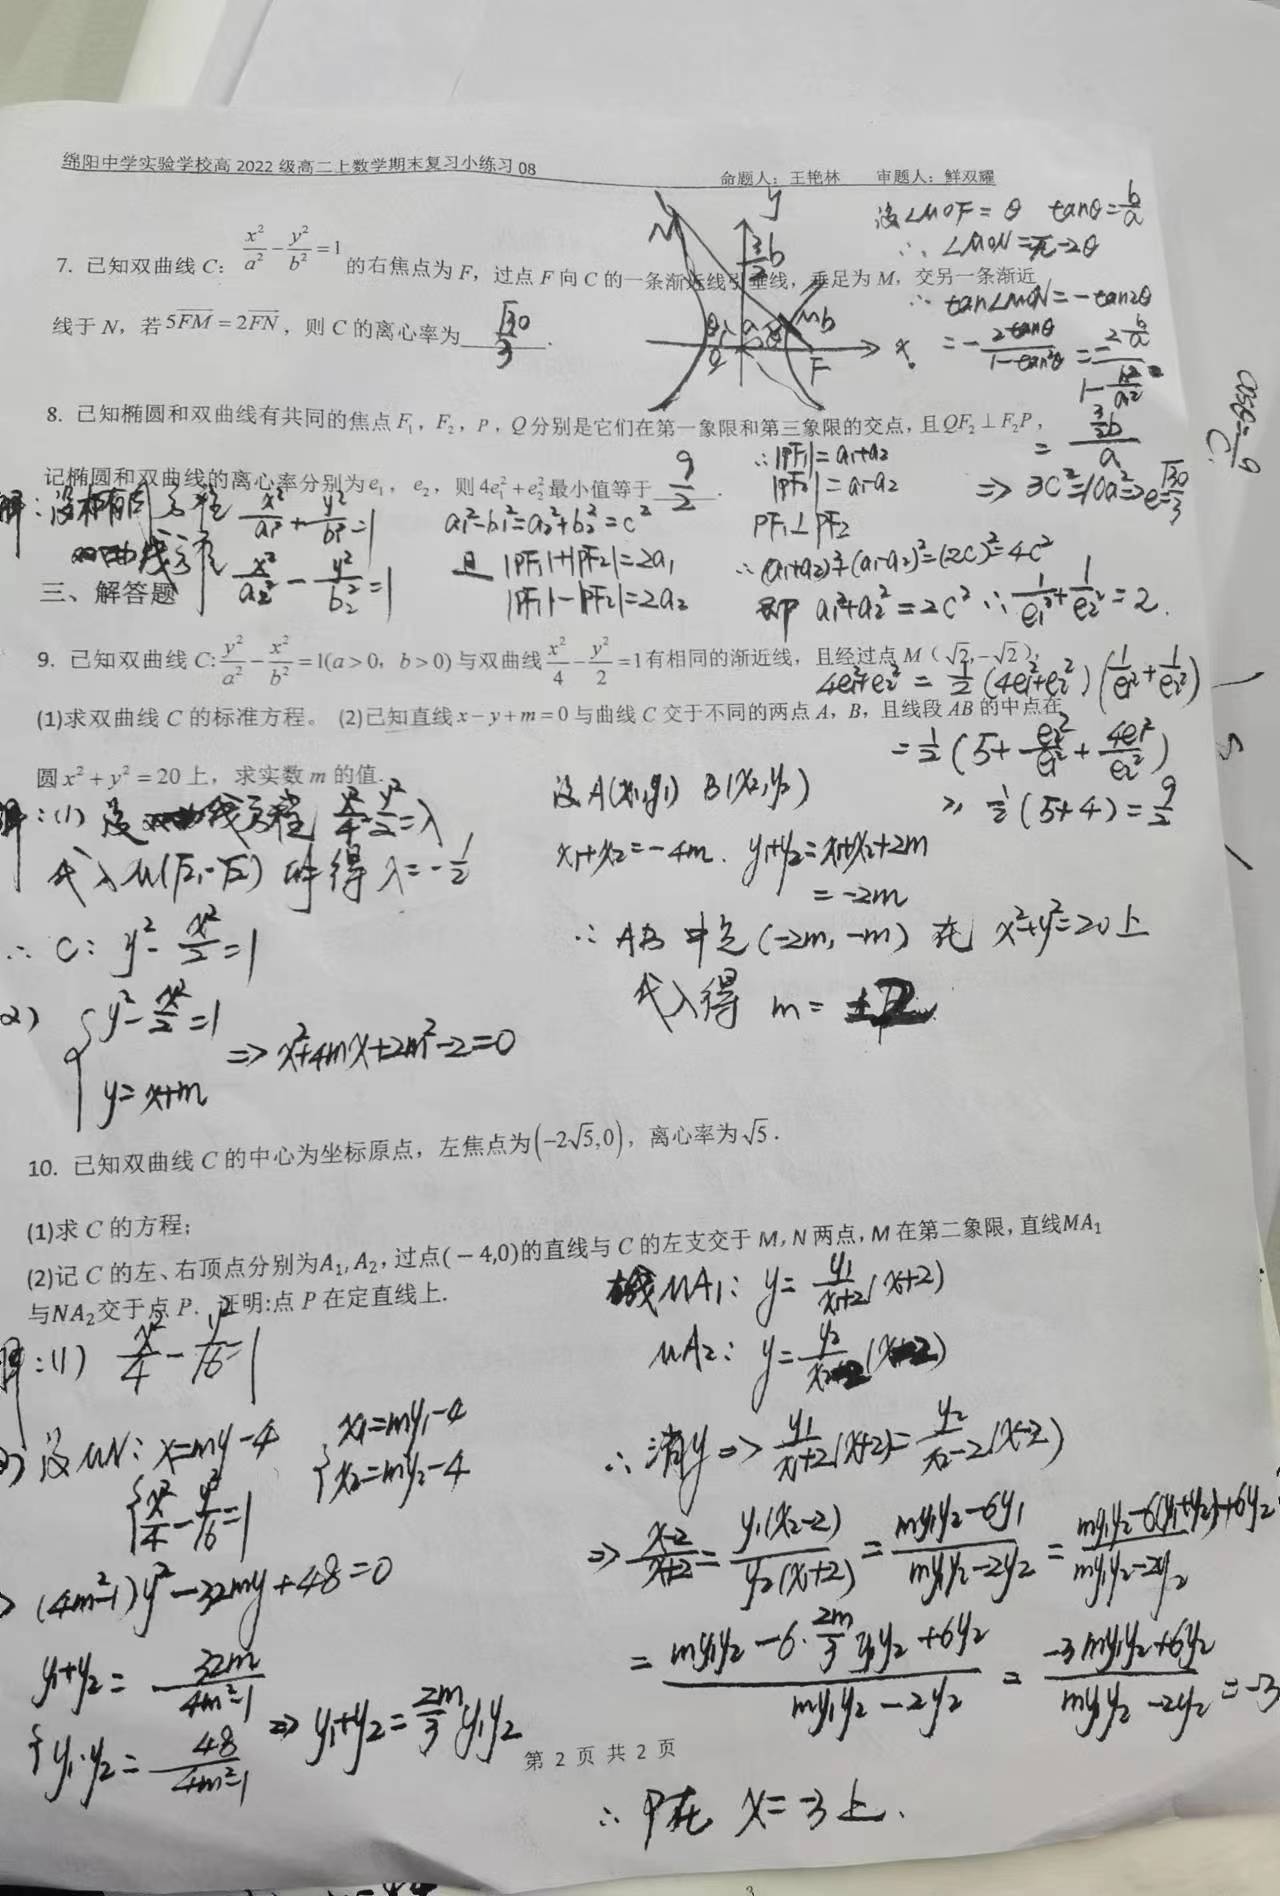 绵阳中学实验学校高 2022 级高二上数学期末复习小练习 08
命题人：王艳林 审题人：鲜双耀
7. 已知双曲线 C：x²/a² - y²/b² = 1 的右焦点为 F，过点 F 向 C 的一条渐近线引垂线，垂足为 M，交另一条渐近
线于 N，若 5FM = 2FN，则 C 的离心率为 √30/3 .
y
N
3/2 b
M b
a
θ
F
x
设∠MOF = θ tanθ = b/a
∴ ∠MON = π - 2θ
∴ tan∠MON = -tan2θ
= - 2tanθ/(1-tan²θ) = -2 b/a / (1 - b²/a²)
= 3/2 b / a
⇒ 3c² = 10a² ⇒ e = √30/3
cosθ = a/c
8. 已知椭圆和双曲线有共同的焦点 F₁，F₂，P，Q 分别是它们在第一象限和第三象限的交点，且 QF₂ ⊥ F₂P，
记椭圆和双曲线的离心率分别为 e₁，e₂，则 4e₁² + e₂² 最小值等于 9/2 .
解：设椭圆方程 x²/a₁² + y²/b₁² = 1
双曲线方程 x²/a₂² - y²/b₂² = 1
a₁² - b₁² = a₂² + b₂² = c²
且 |PF₁| + |PF₂| = 2a₁
|PF₁| - |PF₂| = 2a₂
∴ |PF₁| = a₁ + a₂
|PF₂| = a₁ - a₂
PF₁ ⊥ PF₂
∴ (a₁+a₂)² + (a₁-a₂)² = (2c)² = 4c²
即 a₁² + a₂² = 2c² ∴ 1/e₁² + 1/e₂² = 2.
4e₁² + e₂² = 1/2 (4e₁² + e₂²)(1/e₁² + 1/e₂²)
= 1/2 (5 + e₂²/e₁² + 4e₁²/e₂²)
≥ 1/2 (5+4) = 9/2
三、解答题
9. 已知双曲线 C: y²/a² - x²/b² = 1(a > 0，b > 0) 与双曲线 x²/4 - y²/2 = 1 有相同的渐近线，且经过点 M（√2, -√2），
(1)求双曲线 C 的标准方程。 (2)已知直线 x - y + m = 0 与曲线 C 交于不同的两点 A，B，且线段 AB 的中点在
圆 x² + y² = 20 上，求实数 m 的值.
解：(1) 设双曲线方程 x²/4 - y²/2 = λ
代入 M(√2, -√2) 得 λ = -1/2
∴ C: y² - x²/2 = 1
(2) { y² - x²/2 = 1
y = x+m ⇒ x² + 4mx + 2m² - 2 = 0
设 A(x₁, y₁) B(x₂, y₂)
x₁ + x₂ = -4m. y₁ + y₂ = x₁ + x₂ + 2m
= -2m
∴ AB 中点 (-2m, -m) 在 x² + y² = 20 上
代入得 m = ±2
10. 已知双曲线 C 的中心为坐标原点，左焦点为 (-2√5, 0)，离心率为 √5 .
(1)求 C 的方程；
(2)记 C 的左、右顶点分别为A₁, A₂，过点(－4,0)的直线与 C 的左支交于 M, N 两点，M 在第二象限，直线MA₁
与NA₂交于点 P．证明:点 P 在定直线上.
解：(1) x²/4 - y²/16 = 1
(2) 设 MN: x = my - 4
{ x₁ = my₁ - 4
x₂ = my₂ - 4
{ x²/4 - y²/16 = 1
(4m² - 1)y² - 32my + 48 = 0
{ y₁ + y₂ = 32m/(4m²-1)
y₁·y₂ = 48/(4m²-1) ⇒ y₁ + y₂ = 2m/3 y₁y₂
直线 MA₁: y = y₁/(x₁+2) (x+2)
MA₂: y = y₂/(x₂-2) (x-2)
∴ 消y ⇒ y₁/(x₁+2) (x+2) = y₂/(x₂-2) (x-2)
⇒ (x-2)/(x+2) = y₁(x₂-2)/y₂(x₁+2) = (my₁y₂ - 6y₁)/(my₁y₂ - 2y₂) = (my₁y₂ - 6(y₁+y₂) + 6y₂)/(my₁y₂ - 2y₂)
= (my₁y₂ - 6·2m/3 y₁y₂ + 6y₂)/(my₁y₂ - 2y₂) = (-3my₁y₂ + 6y₂)/(my₁y₂ - 2y₂) = -3
第 2 页 共 2 页
∴ P在 x = -3 上.